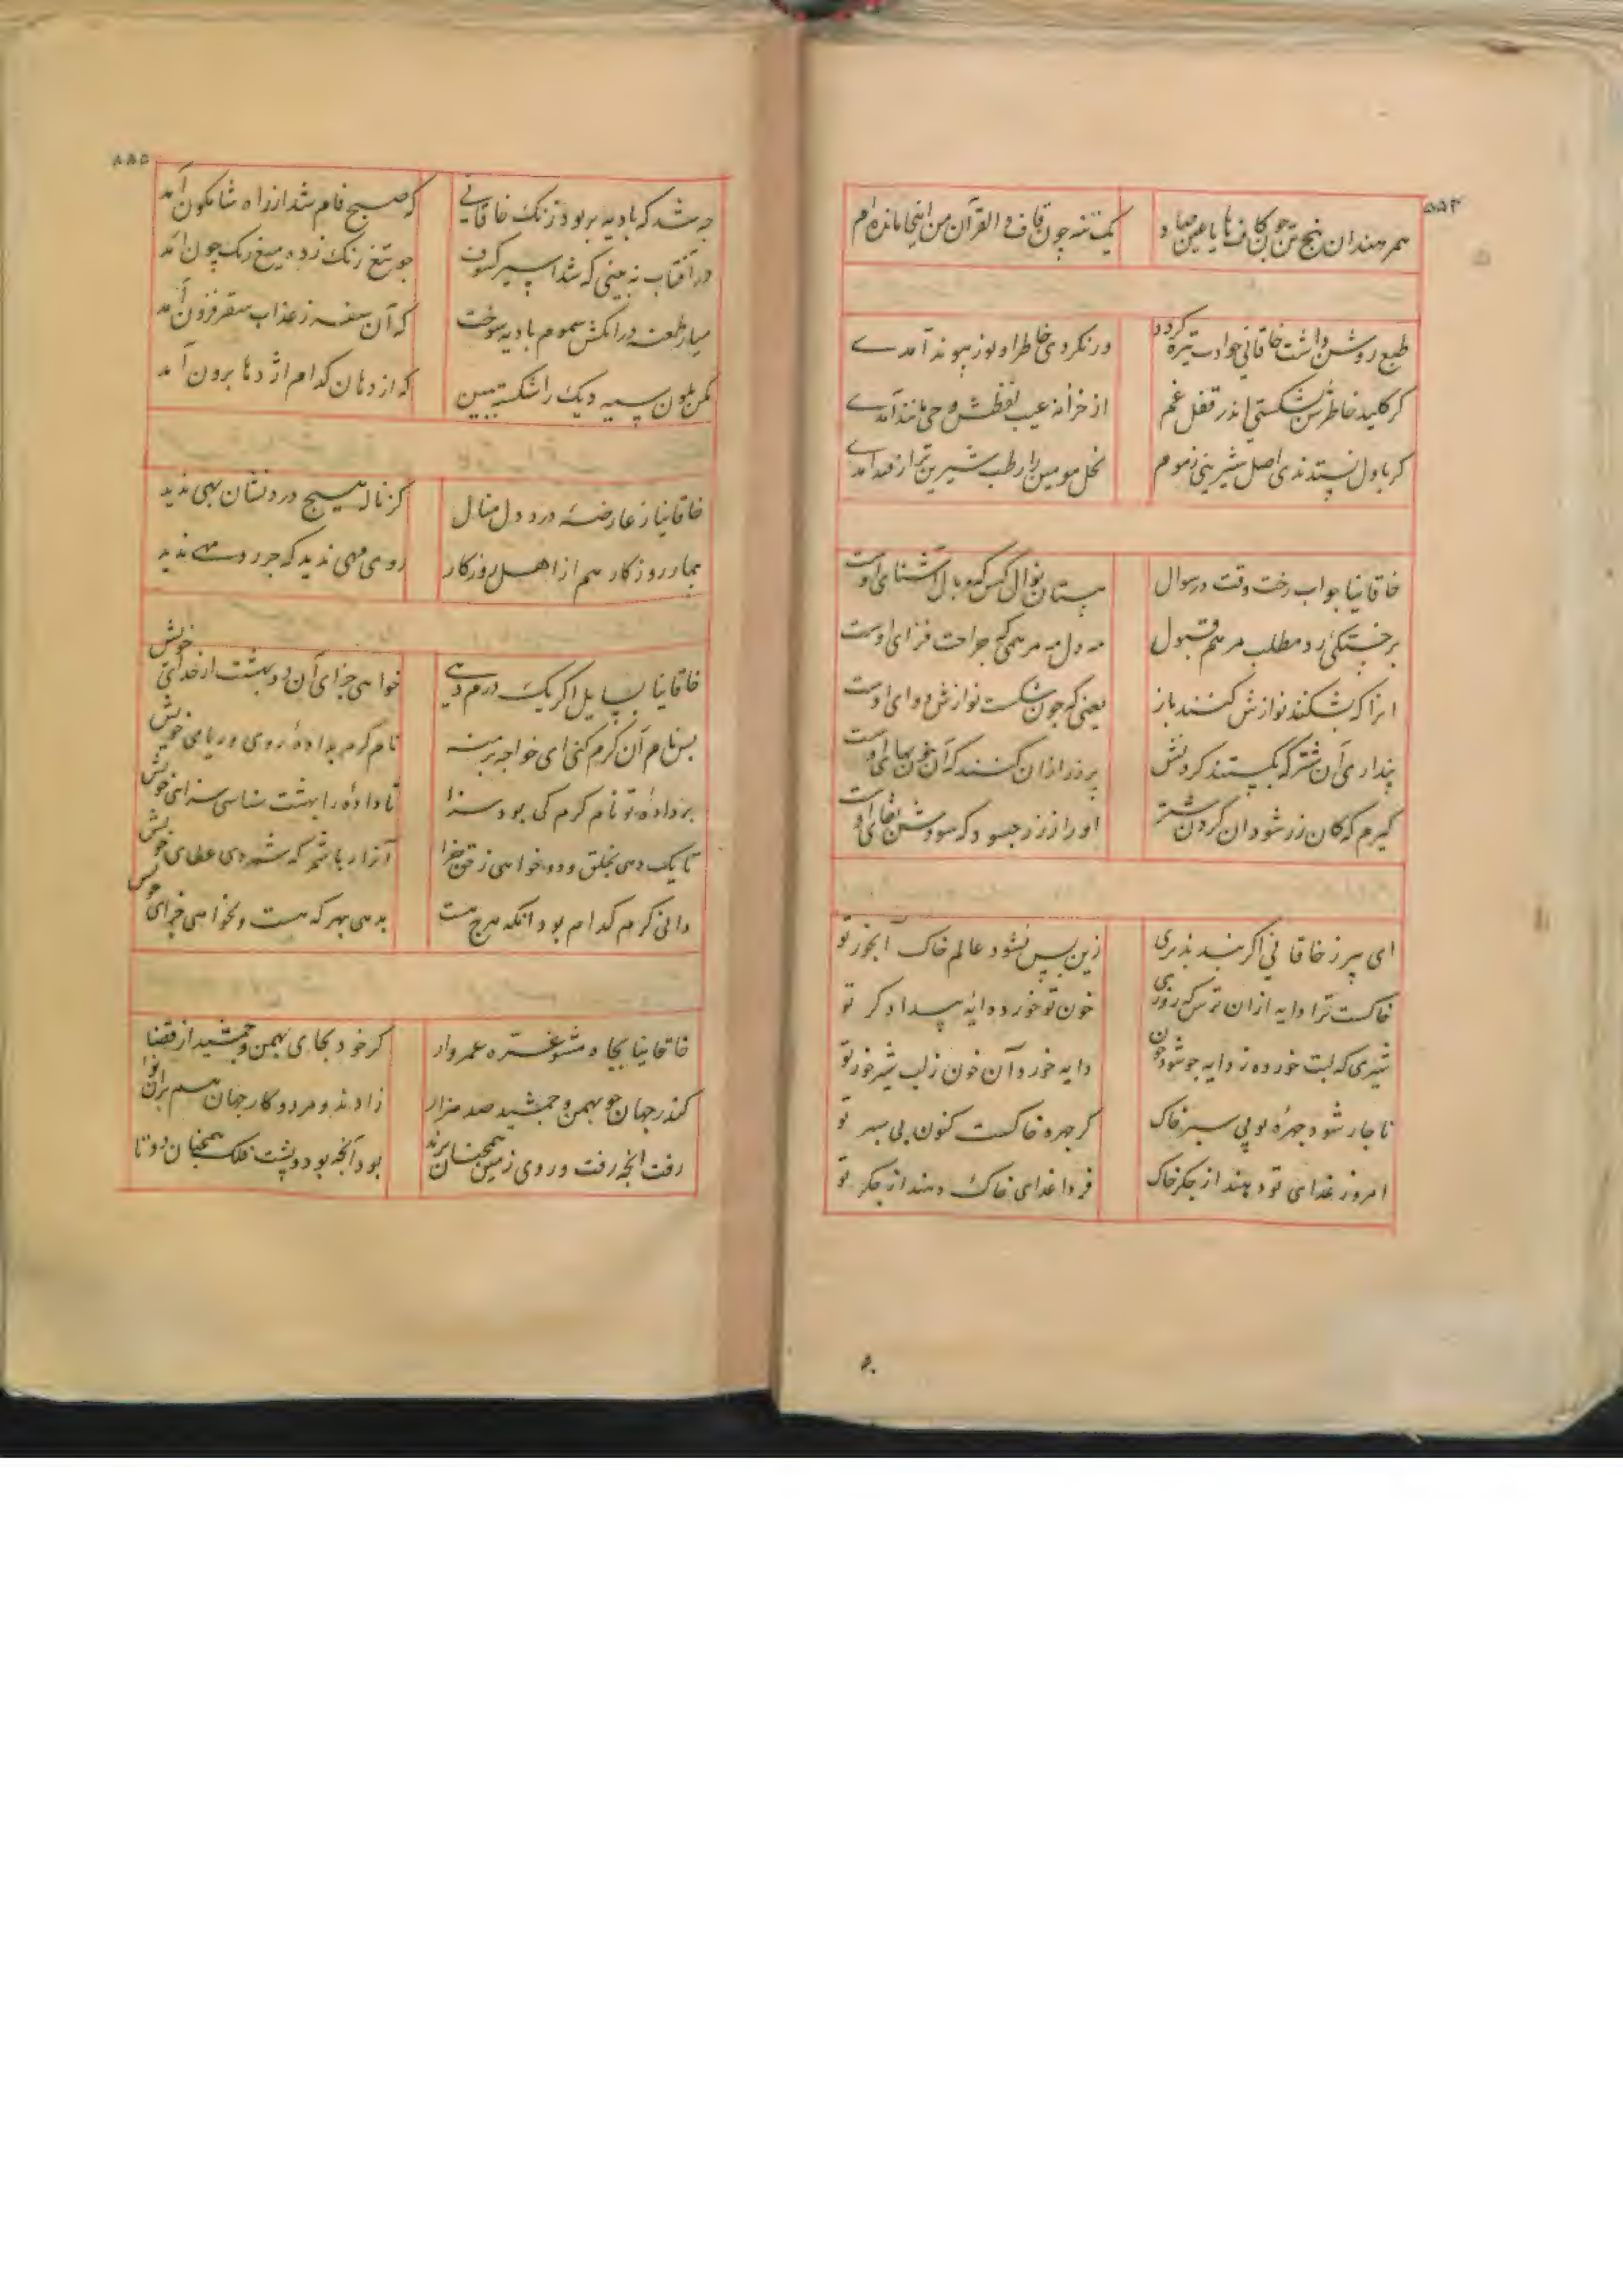 ۵۵۴
همرهند ان پنج تن چون کاف ها یا عین صاد	یک تنه چون قاف و القرآن من اینجا مانده‌ام
طبع روشن داشت خاقانی حوادث تیره کرد	ور نکردی خاطر او نور پیوند آمدے
کر کلید خاطرش نشکستی اندر قفل غم	از خزانه غیب لفظش وحی مانند آمدے
کر باول نستدندی اصل شیرینی ز موم	نخل مومین را رطب شیرین تر از قند آمدے
خاقانیا جواب رخت وقت در سوال	مستان نوال کس که وبال آشنای اوست
بر خستگی رد مطلب مرهم قبول	نه دل نه مرهمی که جراحت فزای اوست
انرا که بشکنند نوازش کنند باز	یعنی که چون شکست نوازش دوای اوست
پنداری آن شتر که بکشتند کردنش	پر زر ازان کنند که آن خونبهای اوست
کیرم که کان زر شود ان کردن شتر	او را ز زر چسود که سودش فنای اوست
ای پیر ز خاقانی اکر پند پذیری	زین پس نشود عالم خاک آبخور تو
خاکست ترا دایه ازان ترس که روزی	خون تو خورد دایه بیدادکر تو
شیری که لبت خورده ز دایه چو شود خون	دایه خورد آن خون ز لب شیرخور تو
ناچار شود چهره تو پی سپر خاک	کر چهره خاکست کنون پی سپر تو
امروز غذای تو دهند از جکر خاک	فردا غذای خاک دهند از جکر تو
۵۵۵
چه شد که بادیه بربود رنک خاقانی	که صبح فام شد از راه شامکون آمد
در آفتاب نه بینی که شد اسیر کسوف	چو تیغ زنک زده میغ رنک چون آمد
میار طعنه در انکش سموم بادیه سوخت	که آن سفر ز عذاب سقر فزون آمد
مکن بلون سیه دیک را شکسته ببین	که از دهان کدام اژدها برون آمد
خاقانیا ز عارضه درد دل منال	کز ناله هیچ درد نشان بهی ندید
بیمار روزکار هم از اهل روزکار	روی بهی ندید که جز روی مهی ندید
خاقانیا بسایل اکر یک درم دهی	خواهی جزای آن دو بهشت از خدای خویش
پس نام آن کرم کنی ای خواجه برمنه	نام کرم بداده روی و ریای خویش
بر داده تو نام کرم کی بود سزا	تا داده را بهشت شناسی سزای خویش
تا یک دهی بخلق و ده خواهی ز حق جزا	آنرا ربا شمر که شمردی عطای خویش
دانی کرم کدام بود آنکه هرچه هست	بدهی بهر که هست و نخواهی جزای خویش
خاقانیا بجاه مشو غره عمروار	کر خود بجای بهمن و جمشید از قضا
کندر جهان چو بهمن و جمشید صد هزار	زادند و مردو کار جهان هم بران نوا
رفت انچه رفت و روی زمین همچنان برند	بود آنچه بود و پشت فلک همچنان دوتا